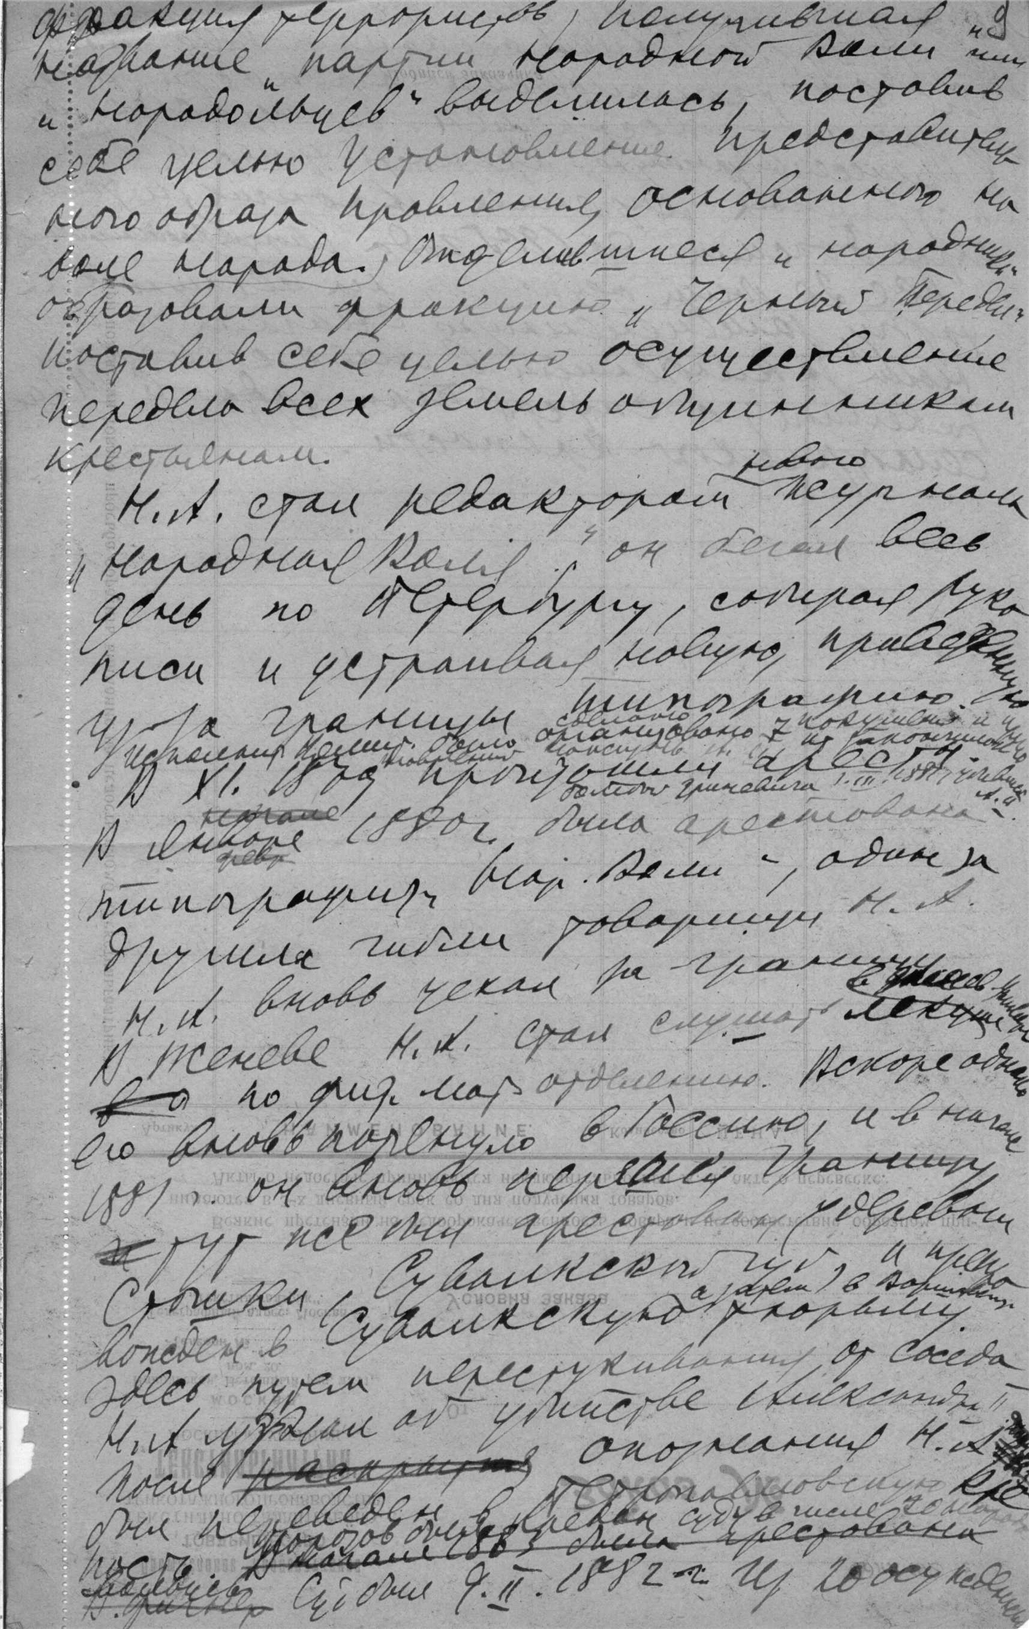 фракция террористов, получившая
название "партии народной Воли" или
"народовольцев" выделилась, поставив
себе целью установление представитель
ного образа правления, основанного на
воле народа. Отделившиеся "народники"
образовали фракцию "Черный Передел"
поставив себе целью осуществление
передела всех земель общинникам
крестьянам.
нового
Н.А. стал редактором журнала
"Народная Воля", он бегал весь
день по Петербургу, собирая руко
писи и устраивая новую, привезенную
из за границы типографию.
организовано 7 покушений
В XI. 1879 произошли аресты.
Гриневича 1.III 1881
начале
В январе 1880 г. была арестована
типография "Нар. Воли", один за
другим гибли товарищи Н.А.
Н.А. вновь уехал за границу
В Женеве Н.А. стал слушать лекции
по физ. мат. отделению. Вскоре однако
его вновь потянуло в Россию, и в начале
1881 г. он вновь перешел границу
и тут же был арестован у деревни
Сувалкской губ., и препро
а затем в Варшавскую
вожден в Сувалкскую тюрьму.
Здесь путем перестукивания от соседа
Н.А. узнал об убийстве Александра II
После опознания Н.А.
был переведен в Петропавловскую кре
пость. В начале 1883 была арестована
Суд был 9.II.1882 г. Из 20 осужденных